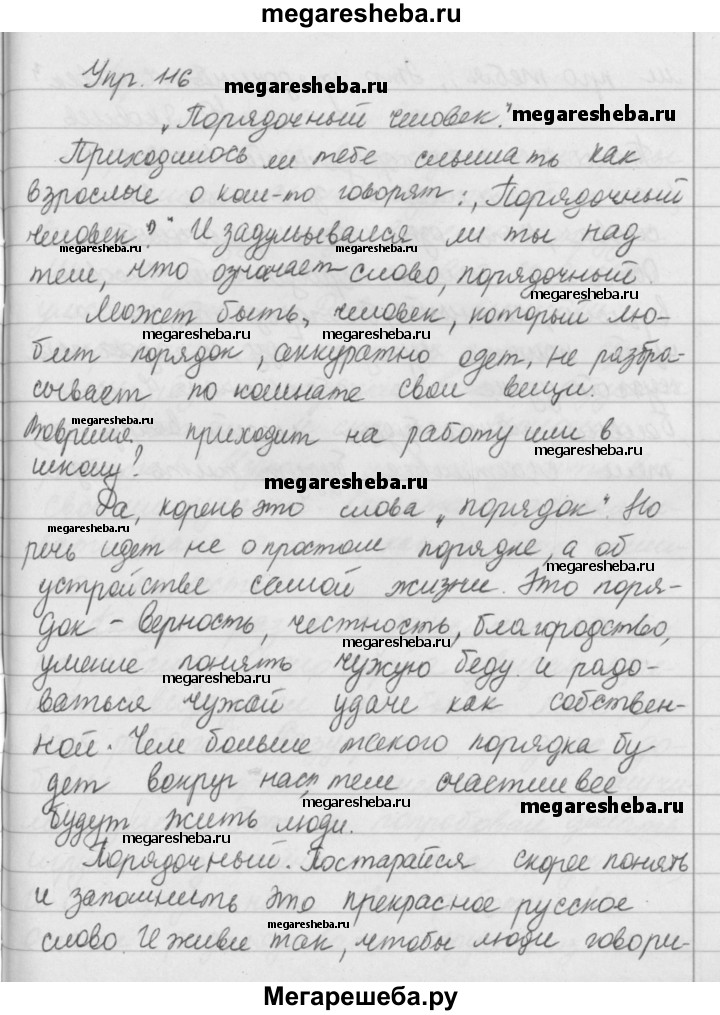 megaresheba.ru
Упр. 116
megaresheba.ru
„Порядочный человек."
megaresheba.ru
Приходилось ли тебе слышать как
взрослые о ком-то говорят: „Порядочный
человек"? И задумывался ли ты над
megaresheba.ru
megaresheba.ru
тем, что означает слово, порядочный.
megaresheba.ru
Может быть, человек, который лю-
megaresheba.ru
megaresheba.ru
бит порядок, аккуратно одет, не разбра-
сывает по комнате свои вещи.
megaresheba.ru
Вовремя приходит на работу или в
школу?
megaresheba.ru
Да, корень это слова „порядок". Но
megaresheba.ru
речь идет не о простом порядке, а об
megaresheba.ru
устройстве самой жизни. Это поря-
док - верность, честность, благородство,
megaresheba.ru
умение понять чужую беду и радо-
megaresheba.ru
ваться чужой удаче как собствен-
ной. Чем больше такого порядка бу
дет вокруг нас, тем счастливее
megaresheba.ru
megaresheba.ru
будут жить люди.
megaresheba.ru
Порядочный. Постарайся скорее понять
и запомнить это прекрасное русское
megaresheba.ru
слово. И живи так, чтобы люди говори-
megaresheba.ru
Мегарешеба.ру